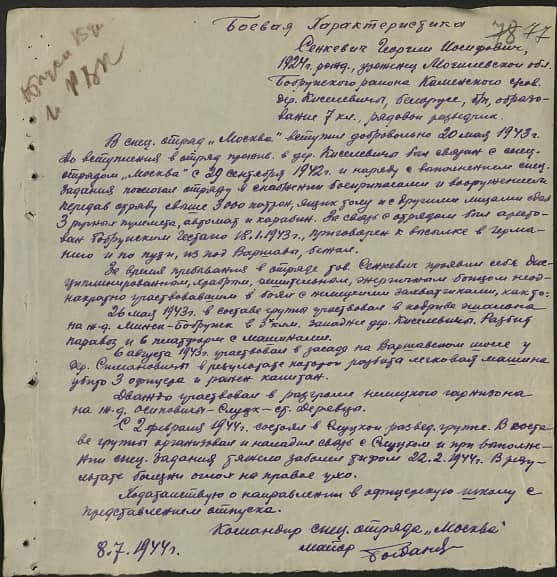 Боевая Характеристика
78 77
Сенкевич Георгий Иосифович,
1924г. рожд., уроженец Могилевской обл.
Бобруйского района Каменского с/сов.
дер. Киселевичи, беларус, б/п, образо-
вание 7 кл., рядовой разведчик.
В спец. отряд „Москва" вступил добровольно 20 мая 1943г.
До вступления в отряд прожив. в дер. Киселевичи был связан с спец.
отрядом „Москва" с 29 сентября 1942г. и наряду с выполнением спец.
задания помогал отряду в снабжении боеприпасами и вооружением
передав отряду свыше 3000 патрон, ящик толу и с другими лицами сдал
3 ручных пулемета, автомат и карабин. За связь с отрядом был аресто-
ван Бобруйским Гестапо 18.1.1943г., приговорен к высылке в Герма-
нию и по пути, из под Варшавы, бежал.
За время пребывания в отряде тов. Сенкевич проявил себя дис-
циплинированным, храбрым, решительным, энергичным бойцом неод-
нократно участвовавшим в боях с немецкими захватчиками, как то:
26 мая 1943г. в составе группы участвовал в подрыве эшалона
на ж.д. Минск-Бобруйск в 3 клм. западнее дер. Киселевичи. Разбит
паравоз и 6 платформ с машинами.
6 августа 1943г. участвовал в засаде на Варшавском шоссе у
дер. Симановичи в результате которой разбита легковая машина
убито 3 офицера и ранен капитан.
Дважды участвовал в разгроме немецкого гарнизона
на ж.д. Осиповичи-Слуцк-ст. Деревцы.
С 2 февраля 1944г. состоял в Слуцкой развед. группе. В соста-
ве группы организовал и наладил связь с Слуцком и при выполне-
нии спец. задания тяжело заболел тифом 22.2.1944г. В резу-
льтате болезни оглох на правое ухо.
Ходатайствую о направлении в офицерскую школу с
предоставлением отпуска.
Командир спец. отряда „Москва"
8.7.1944г. майор